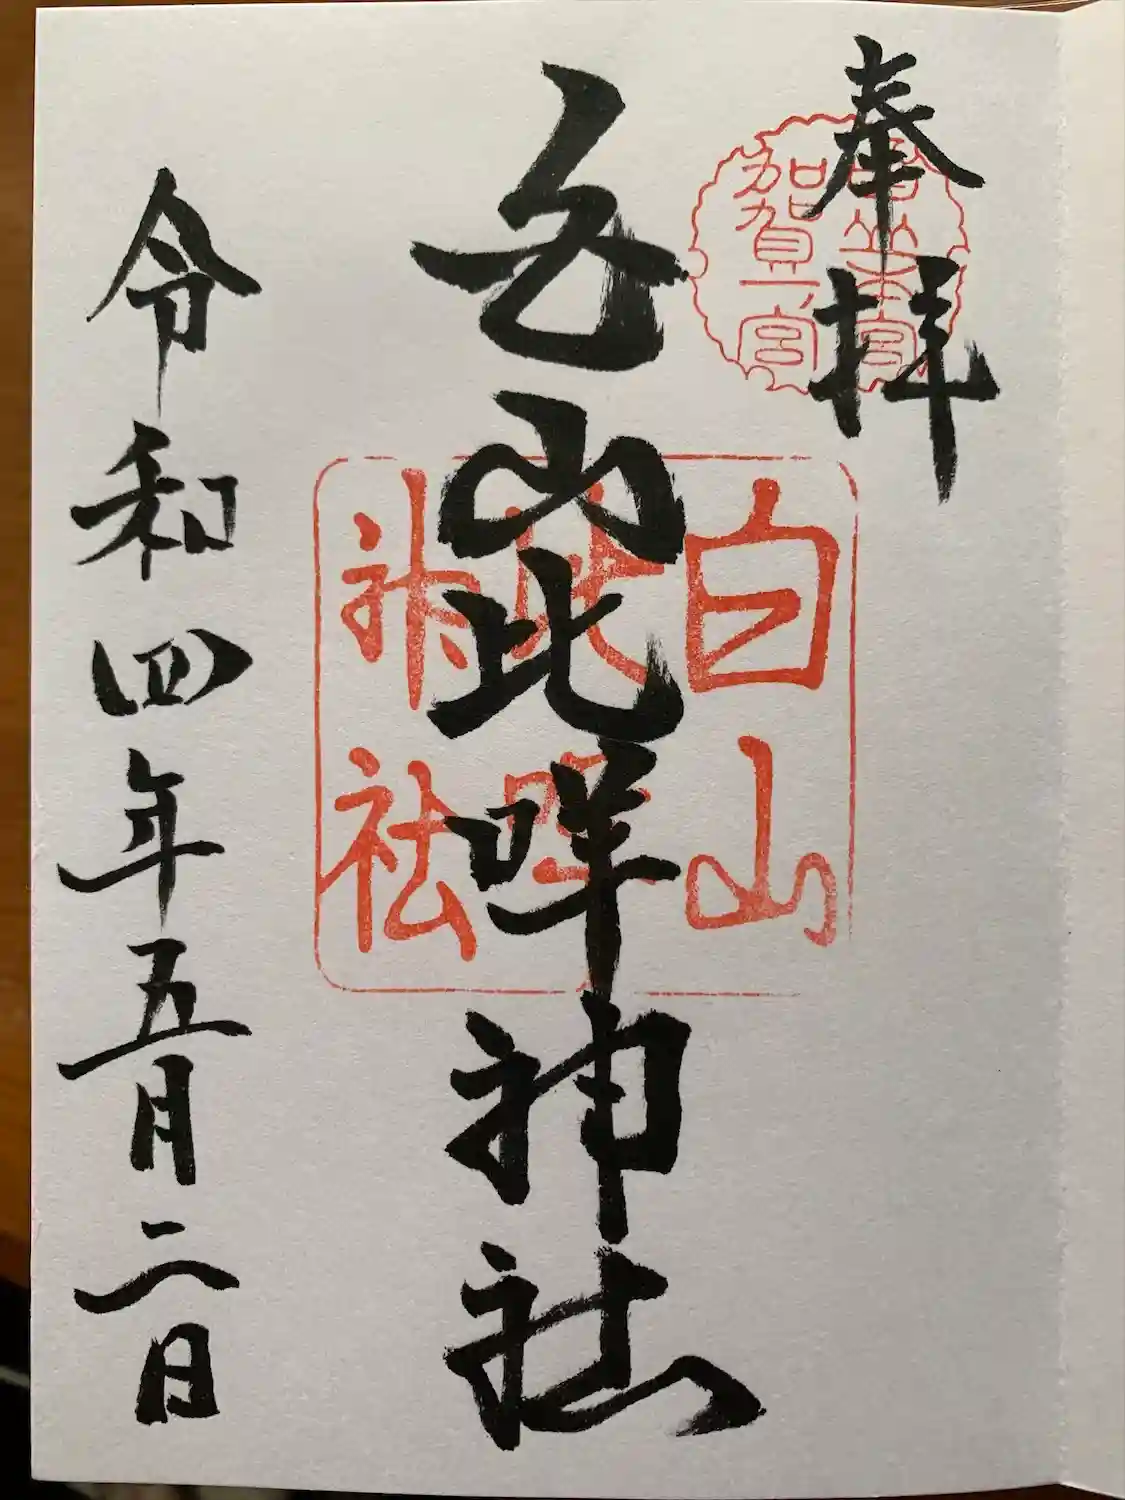 奉拝
本宮
加賀一ノ宮
白山比咩神社
白山
比咩
神社
令和四年五月二日